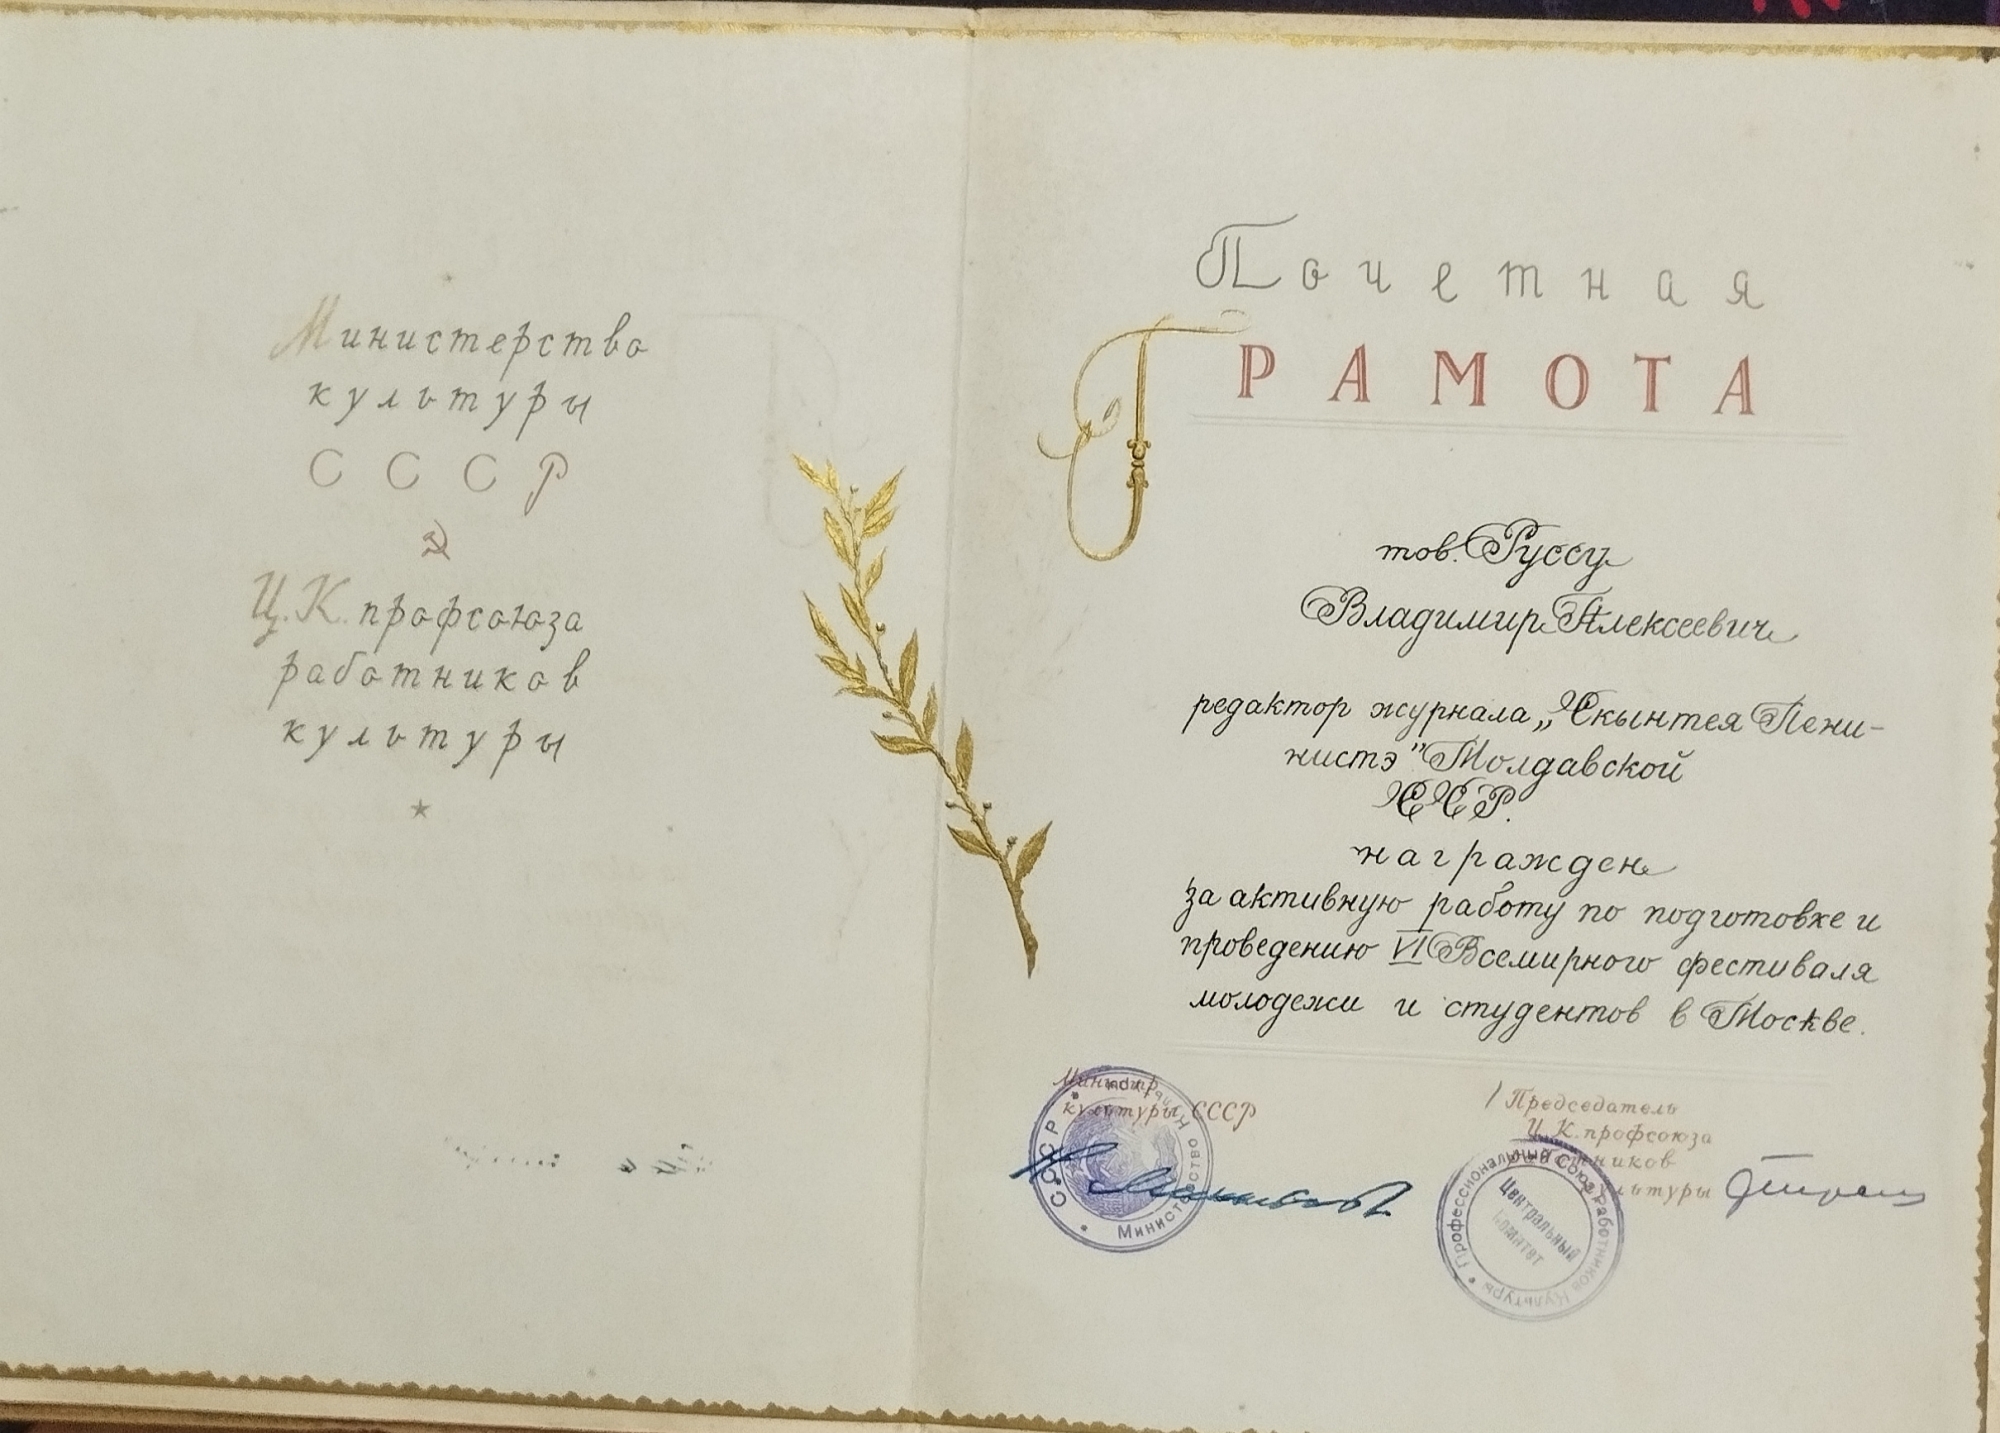 Министерство
культуры
СССР
Ц.К. профсоюза
работников
культуры
Почетная
ГРАМОТА
тов. Руссу
Владимир Алексеевич
редактор журнала „Скынтея Лени-
нистэ" Молдавской
ССР.
награжден
за активную работу по подготовке и
проведению VI Всемирного фестиваля
молодежи и студентов в Москве.
Министр
культуры СССР
СССР • Министерство Культуры •
Председатель
Ц.К. профсоюза
работников
культуры
Профессиональный Союз Работников Культуры •
Центральный
Комитет